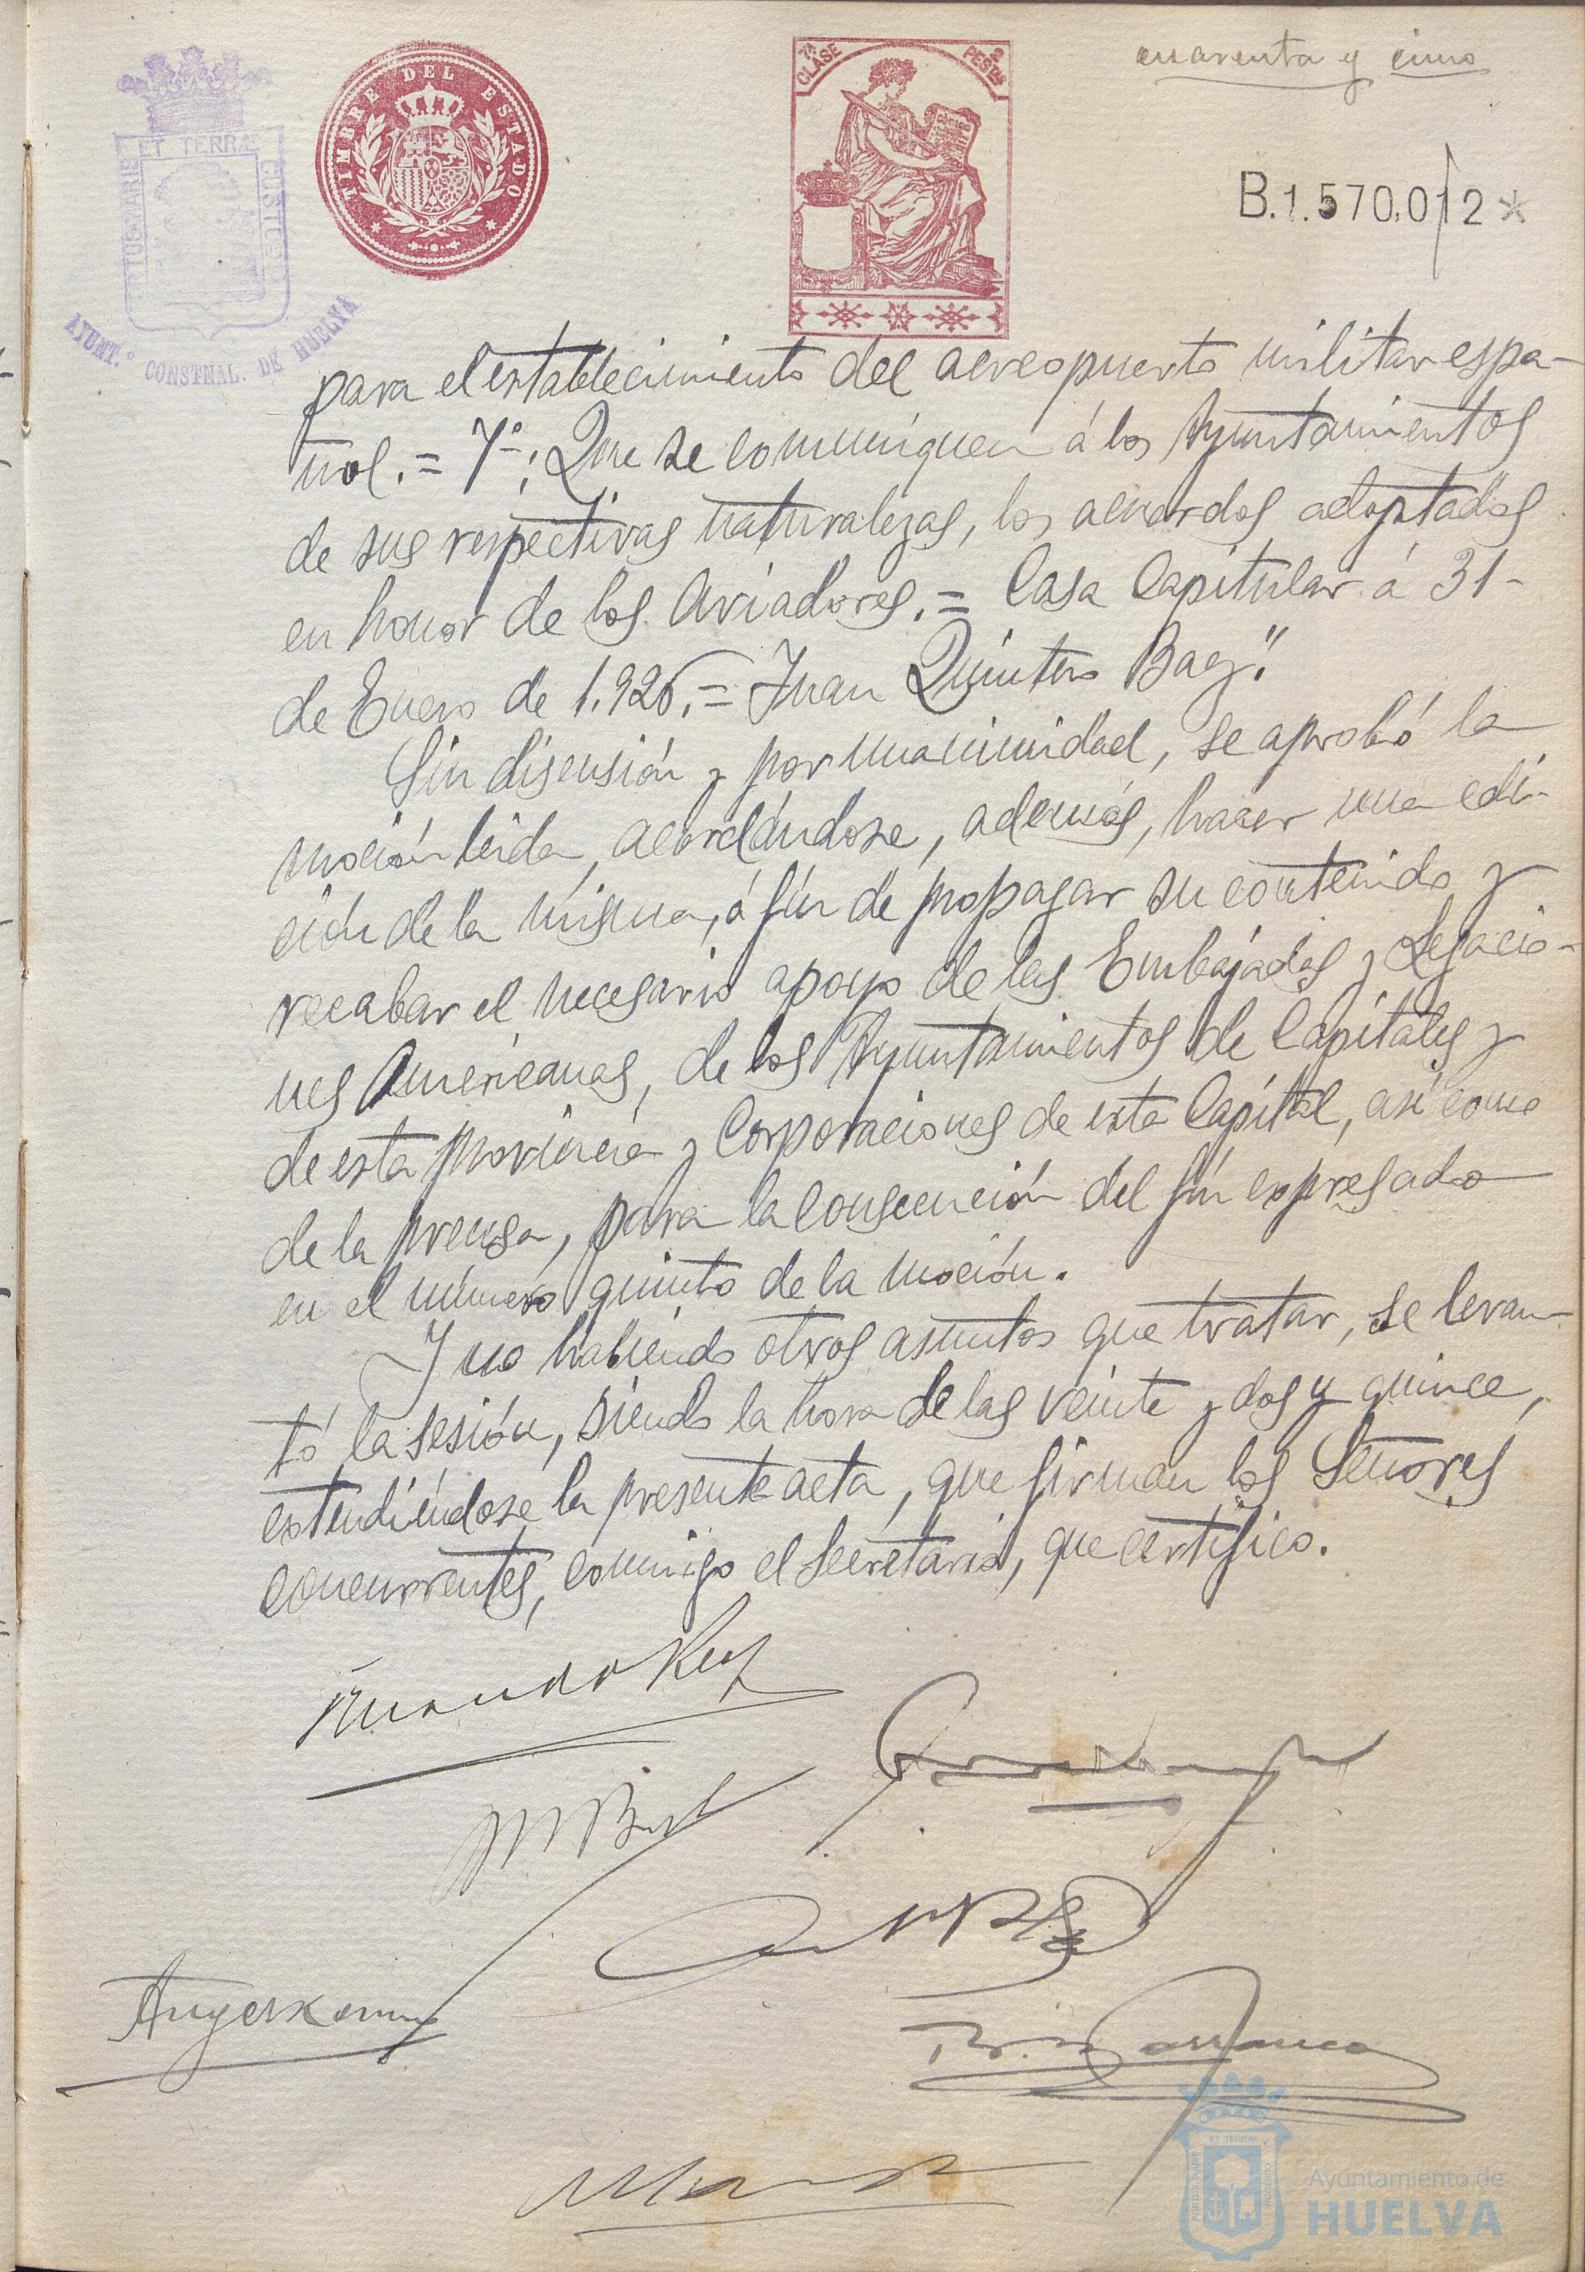 cuarenta y cinco
TIMBRE DEL ESTADO
7ª CLASE 2 PESETAS
ET TERRÆ
CUSTOS
AYUNT.º CONSTNAL. DE HUELVA
B.1.570.012*
para el establecimiento del aereopuerto militar espa-
ñol.= 7º: Que se comuniquen á los Ayuntamientos
de sus respectivas naturalezas, los acuerdos adoptados
en honor de los Aviadores.= Casa Capitular á 31-
de Enero de 1.926.= Juan Quintero Baez".
Sin discusión y por unanimidad, se aprobó la
moción leida, acordándose, además, hacer una edi-
ción de la misma, á fín de propagar su contenido y
recabar el necesario apoyo de las Embajadas y Legacio-
nes Americanas, de los Ayuntamientos de Capitales y
de esta provincia y Corporaciones de esta Capital, así como
de la prensa, para la consecución del fín expresado
en el número quinto de la moción.
Y no habiendo otros asuntos que tratar, se levan-
tó la sesión, siendo la hora de las veinte y dos y quince,
extendiéndose la presente acta, que firman los Señores
concurrentes, conmigo el Secretario, que certifico.
Ayuntamiento de
HUELVA